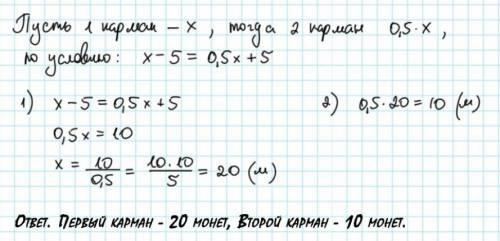 Пусть 1 карман – x, тогда 2 карман 0,5·x,
по условию: x-5=0,5x+5
1) x-5=0,5x+5 2) 0,5·20=10 (м)
0,5x=10
x = 10/0,5 = 10·10/5 = 20 (м)
Ответ. Первый карман - 20 монет, Второй карман - 10 монет.